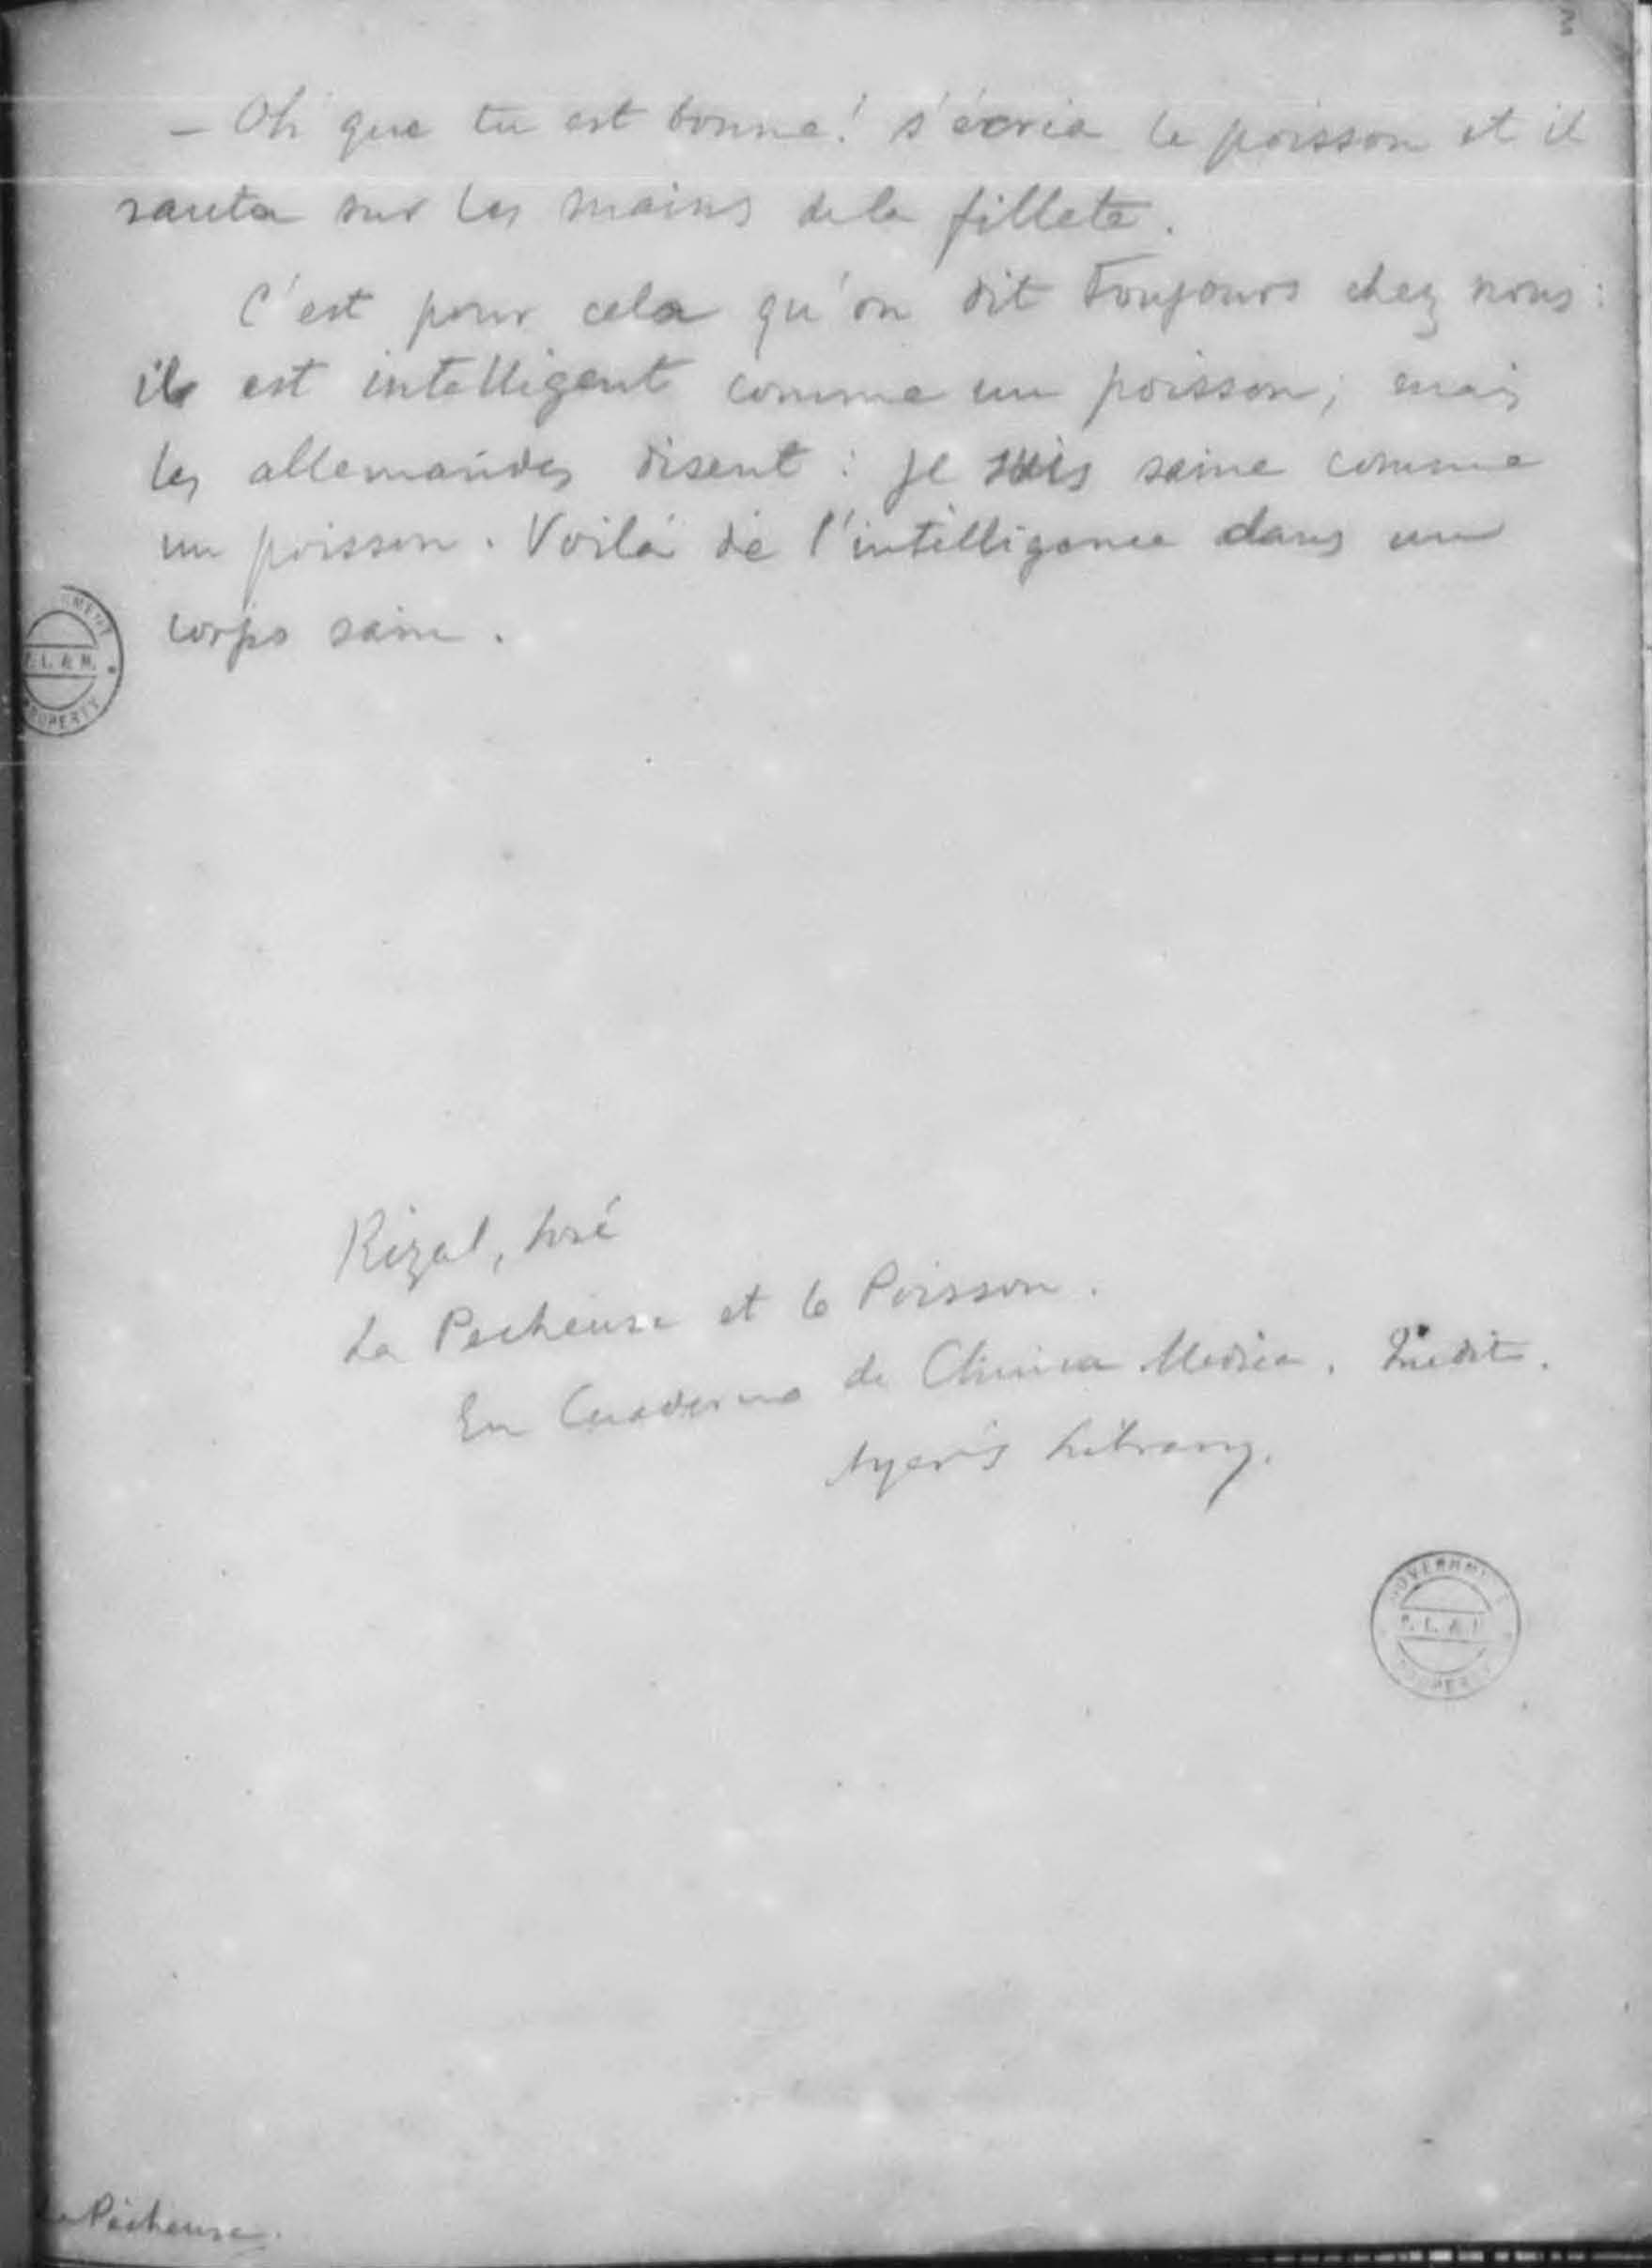 3
— Oh que tu est bonne! s'écria le poisson et il
sauta sur les mains de la fillete.
C'est pour cela qu'on dit toujours chez nous:
il est intelligent comme un poisson; mais
les allemandes disent: je suis saine comme
un poisson. Voilà de l'intelligence dans un
corps sain.
P. L. & M.
PROPERTY
Rizal, José
La Pecheuse et le Poisson.
En Cuaderno de Clinica Medica. Inedit.
Ayer's Library.
GOVERNMENT
P. L. & M.
PROPERTY
La Pêcheuse.